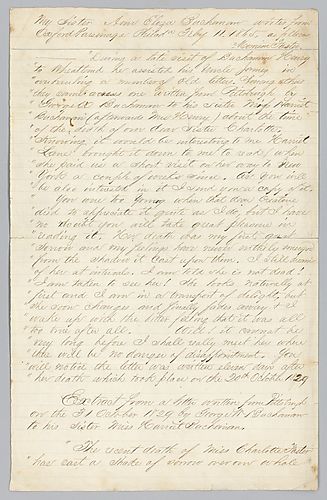 My Sister Ann Eliza Buchanan writes from
Oxford Parsonage Philada Feby 11. 1865, as follows
"During a late visit of Buchanan Henry
" to Wheatland he assisted his Uncle James in
" overhauling a number of old letters. Among others
" they came across one written from Pittsburgh by
" George W Buchanan to his sister Miss Harriet
Buchanan (afterwards Mrs Henry) about the time
" of the death of our dear Sister Charlotte.
" Knowing it would be interesting to me Harriet
" Lane brought it down to me to read, when
" she paid us a short visit on her way to New
" York a couple of weeks since. As you will
" be also interested in it I send you a copy of it.
" You were too young when that dear creature
" died to appreciate it quite as I do, but I have
" no doubt you will take great pleasure in
" reading it. Her death was my first great
" sorrow and my feelings have never entirely emerged
" from the shadow it cast upon them. I still dream
" of her at intervals. I am told she is not dead!
" I am taken to see her! She looks naturally at
" first and I am in a transport of delight, but
" she soon changes and finally fades away & I
" wake up with the bitter feeling that it is all
" too true after all. Well! it cannot be
" very long before I shall really meet her where
" there will be no danger of disappointment. You
" will notice the letter was written eleven days after
" her death which took place on the 20th October 1829
Extract from a letter written from Pittsburgh
on the 31 October 1829 by George W Buchanan
to his sister Miss Harriet Buchanan.
"The recent death of Miss Charlotte Foster
"has cast a shade of sorrow over our whole